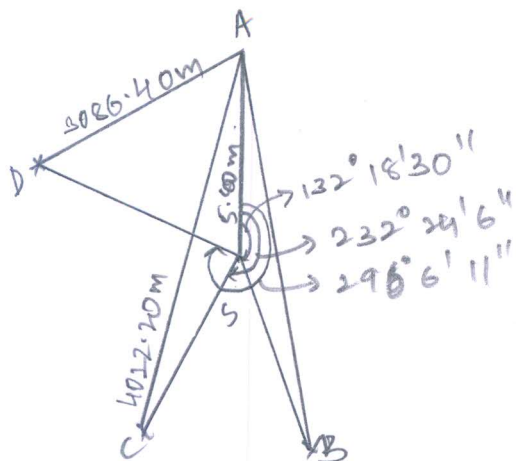 A
3086.40m
D
5.800m
132° 18'30"
232° 24'6"
296° 6' 11"
S
4012.20m
C
B